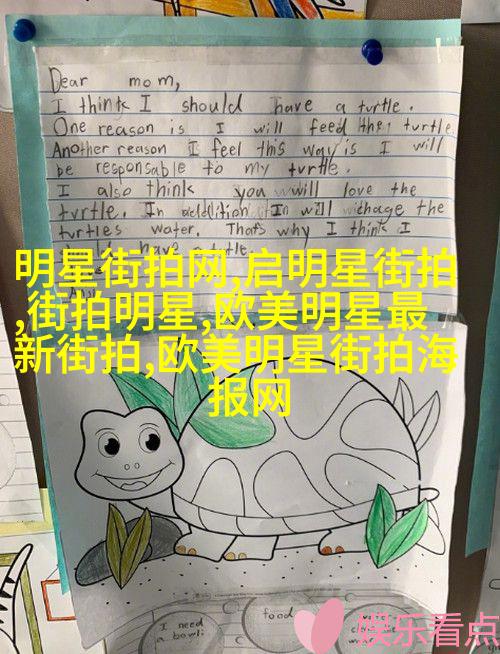 Dear mom,
I think I should have a turtle.
One reason is I will feed the turtle.
Another reason I feel this way is I will
be responsable to my turtle.
I also think you will love the
turtle. In addition I will chage the
turtles water. That's why I think I
明星街拍网,启明星街拍
,街拍明星,欧美明星最
新街拍,欧美明星街拍海
报网
I need
a bowl
food
娱乐看点